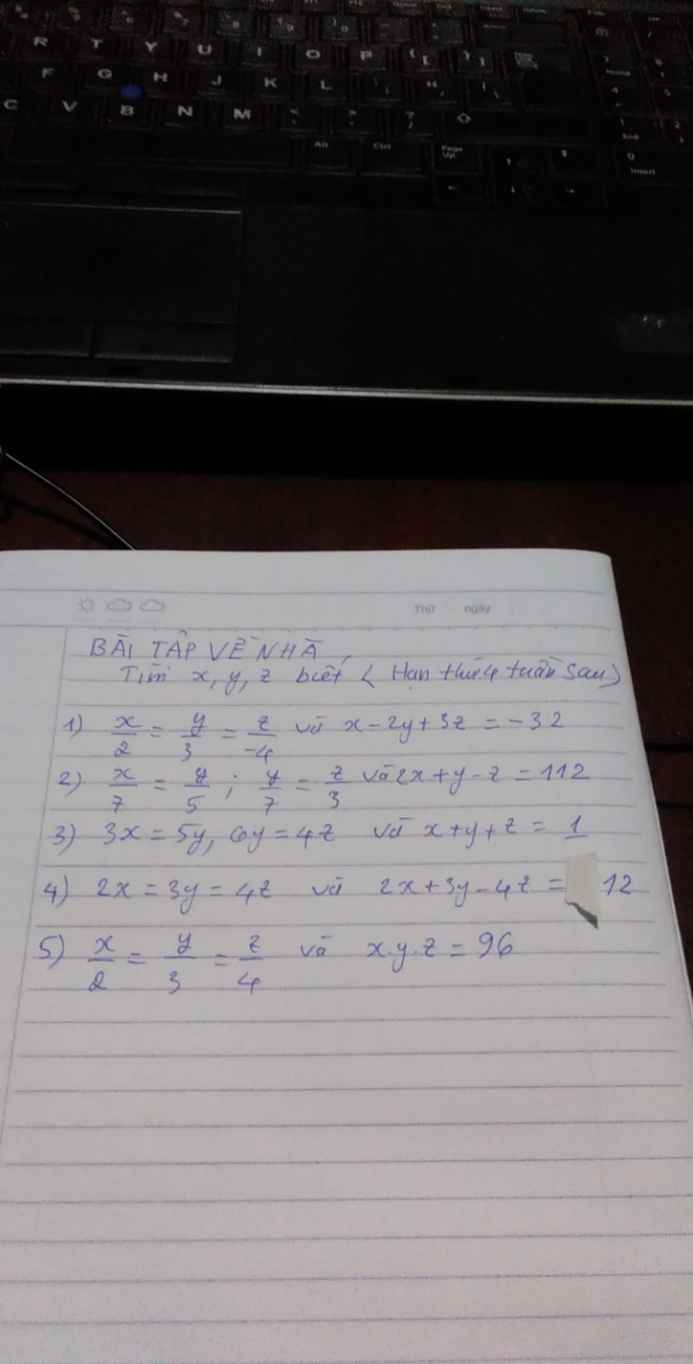 R T Y U I O P { [ } ]
F G H J K L
C V B N M
Alt Ctrl Page Up
Insert
Thứ ngày
BÀI TẬP VỀ NHÀ
Tìm x, y, z biết ( Hạn thứ 4 tuần sau)
1) x/2 = y/3 = z/-4 và x - 2y + 3z = -32
2) x/7 = y/5 ; y/7 = z/3 và 2x + y - z = 112
3) 3x = 5y, 6y = 4z và x + y + z = 1
4) 2x = 3y = 4z và 2x + 3y - 4z = 12
5) x/2 = y/3 = z/4 và x.y.z = 96